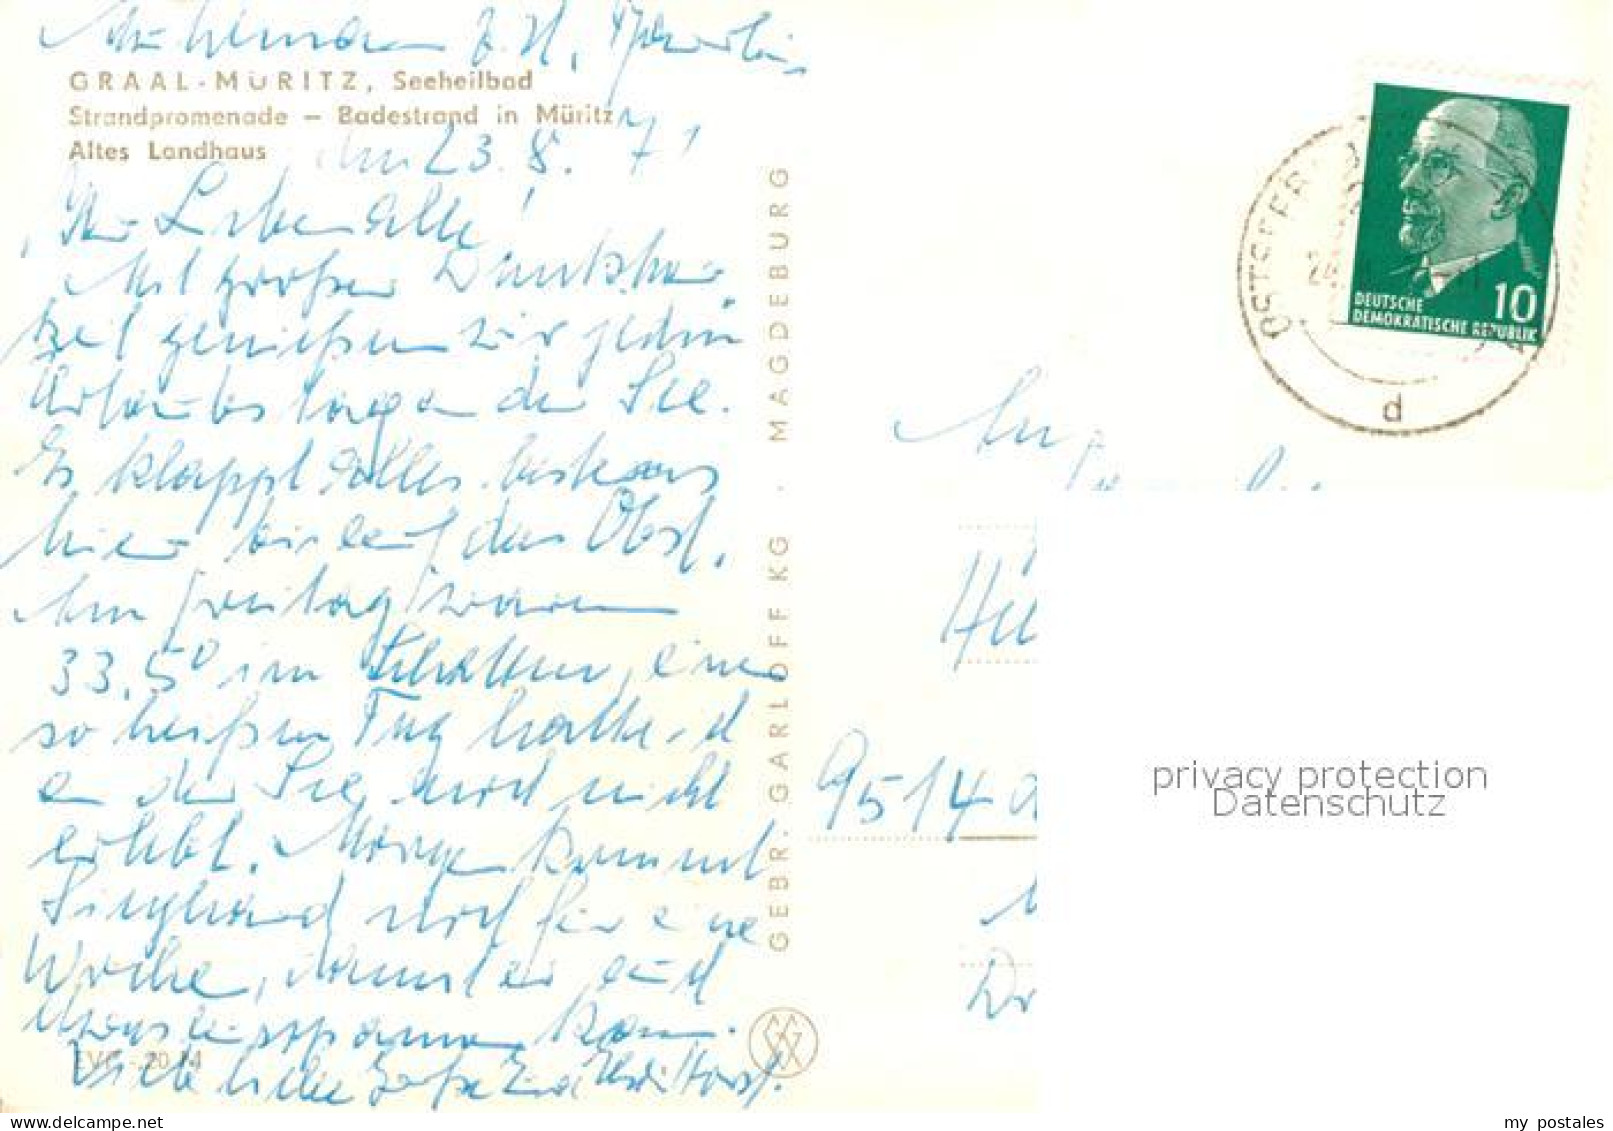 GRAAL-MÜRITZ, Seeheilbad
Strandpromenade – Badestrand in Müritz
Altes Landhaus
den 23. 8. 71
Ihr Lieben alle!
Mit großer Dankbar-
keit genießen wir jeden
Urlaubstag an der See.
Es klappt alles bestens
hier bis auf das Obst.
Am Freitag waren
33,5° im Schatten, eine
so heißen Tag hatte ich
an der See noch nicht
erlebt. Morgen kommt
noch für eine
Woche, damit er auch
ausspannen kann.
Viele liebe Grüße Horst.
GEBR. GARLOFF KG · MAGDEBURG
DEUTSCHE
DEMOKRATISCHE REPUBLIK
10
d
9514
privacy protection
Datenschutz
www.delcampe.net
my_postales